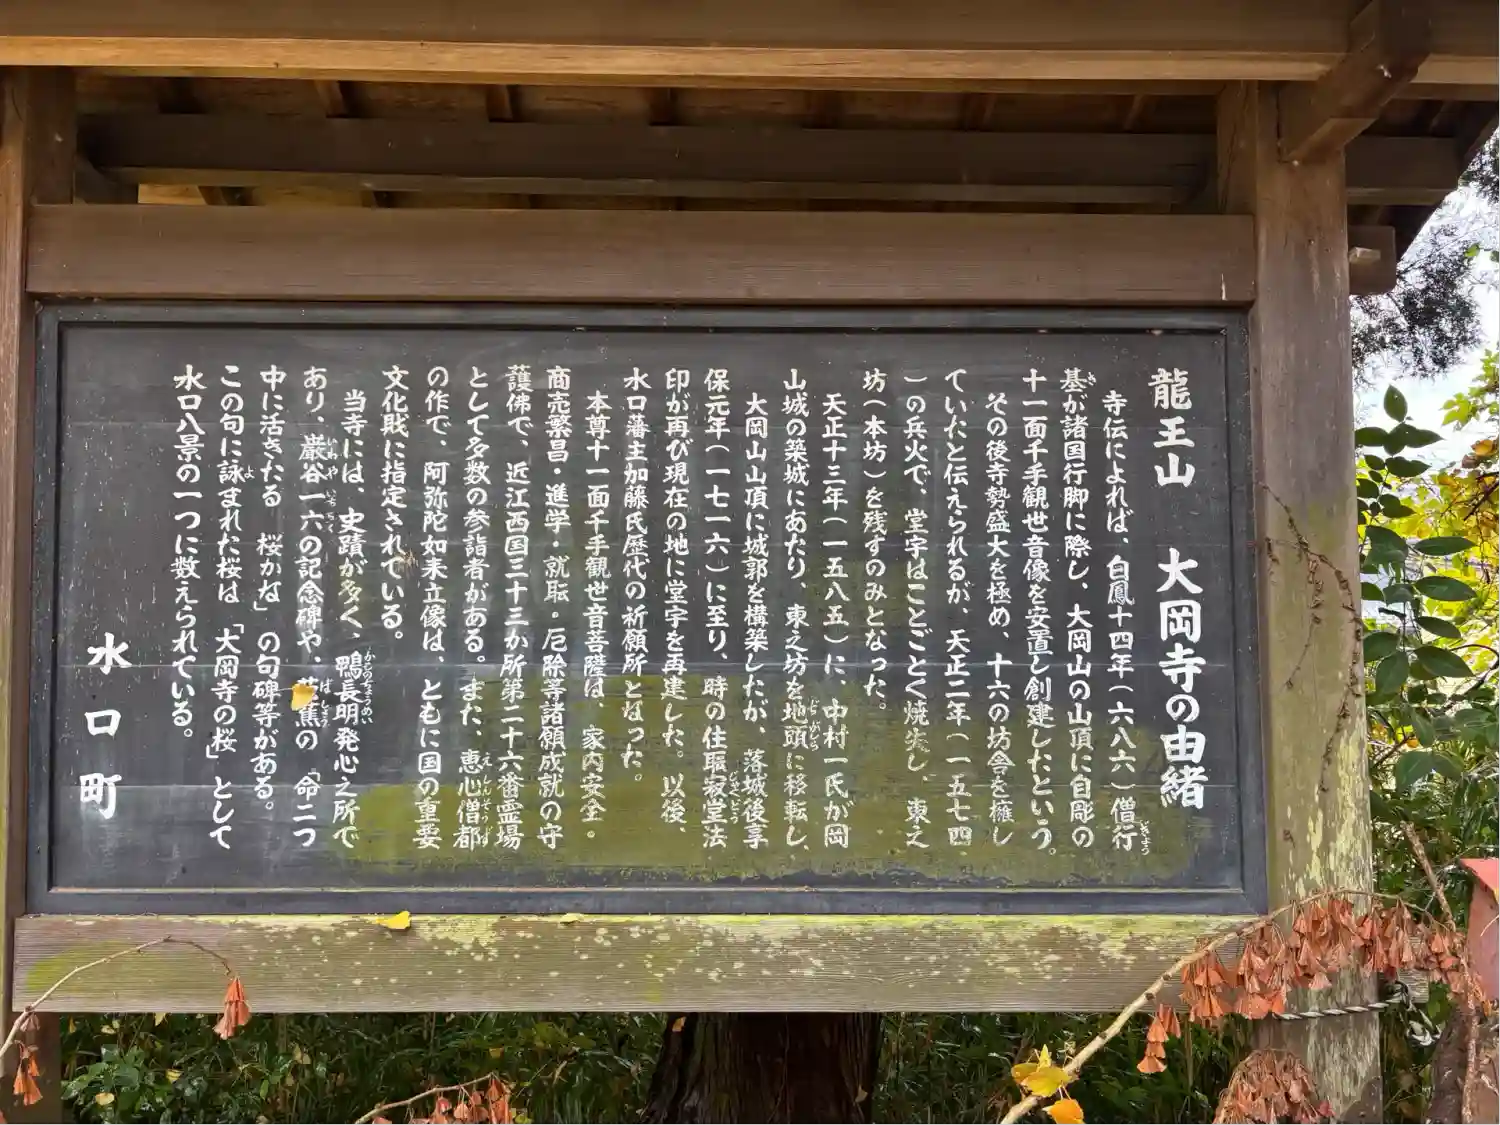 龍王山 大岡寺の由緒
寺伝によれば、白鳳十四年(六八六)僧行
基が諸国行脚に際し、大岡山の山頂に自彫の
十一面千手観世音像を安置し創建したという。
その後寺勢盛大を極め、十六の坊舎を擁し
ていたと伝えられるが、天正二年(一五七四
)の兵火で、堂宇はことごとく焼失し、東之
坊(本坊)を残すのみとなった。
天正十三年(一五八五)に、中村一氏が岡
山城の築城にあたり、東之坊を地頭に移転し、
大岡山山頂に城郭を構築したが、落城後享
保元年(一七一六)に至り、時の住職寂堂法
印が再び現在の地に堂宇を再建した。以後、
水口藩主加藤氏歴代の祈願所となった。
本尊十一面千手観世音菩薩は、家内安全。
商売繁昌・進学・就職。厄除等諸願成就の守
護佛で、近江西国三十三か所第二十六番霊場
として多数の参詣者がある。また、恵心僧都
の作で、阿弥陀如来立像は、ともに国の重要
文化財に指定されている。
当寺には、史蹟が多く、鴨長明発心之所で
あり、巌谷一六の記念碑や、芭蕉の「命二つ
中に活きたる 桜かな」の句碑等がある。
この句に詠まれた桜は「大岡寺の桜」として
水口八景の一つに数えられている。
水口町